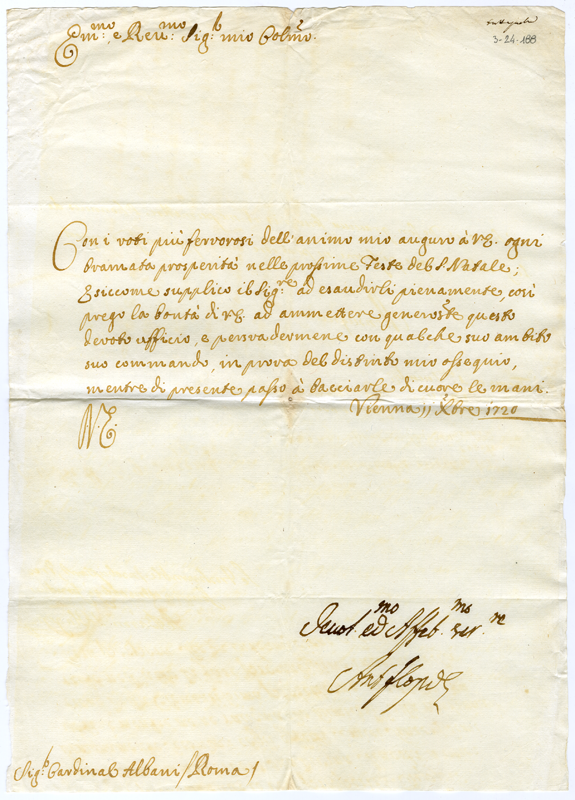 3-24-188
Em:mo e Reu:mo Sig:r mio Colmo.
Con i voti più fervorosi dell'animo mio auguro à V.E. ogni
bramata prosperità nelle prossime Feste del S. Natale;
E siccome supplico il Sig:re ad esaudirli pienamente, così
prego la bontà di V.E. ad ammettere generos:te questo
devoto ufficio, e persuadermene con qualche suo ambito
suo commando, in prova del distinto mio ossequio,
mentre di presente passo à bacciarle di cuore le mani.
Vienna 11 Xbre 1720
V.E.
Deuot.mo ed Affeb.mo ser.re
Sig:r Cardinal Albani / Roma /